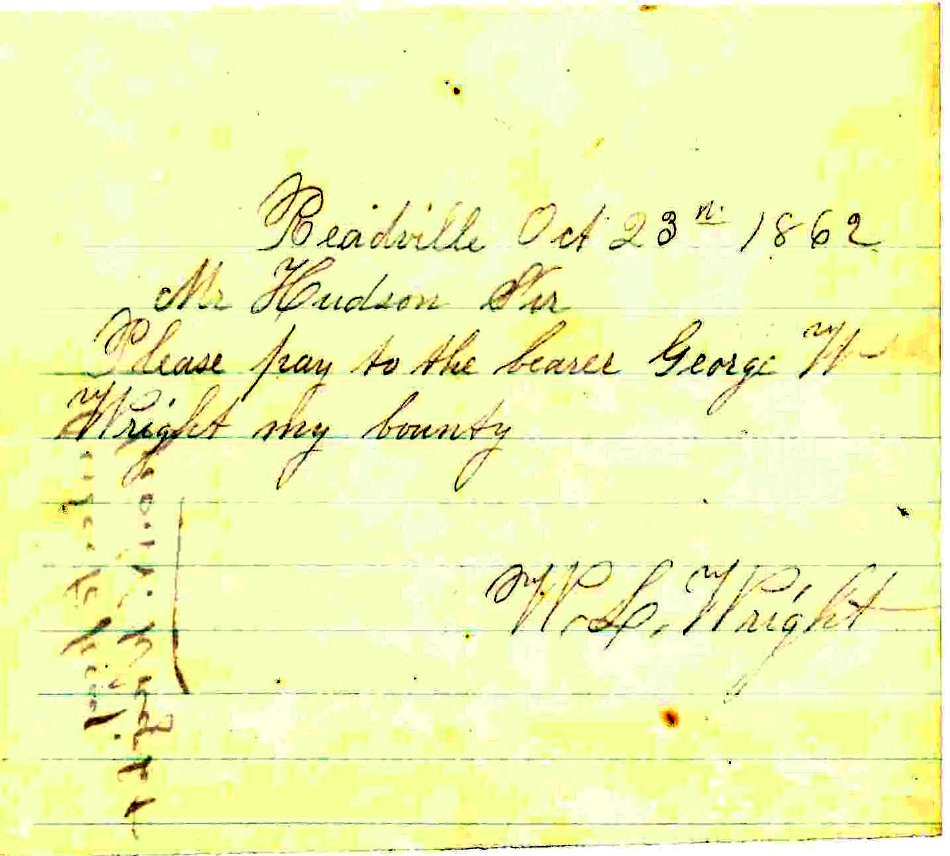 Readville Oct 23n. 1862
Mr Hudson Sir
Please pay to the bearer George W
Wright my bounty
W. L. Wright